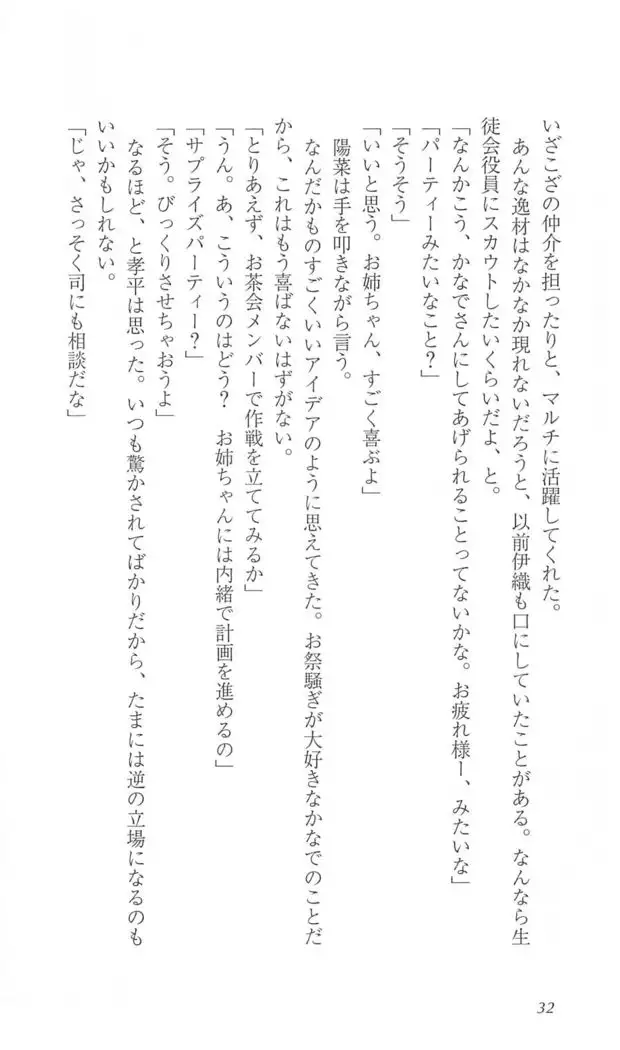 いざこざの仲介を担ったりと、マルチに活躍してくれた。
あんな逸材はなかなか現れないだろうと、以前伊織も口にしていたことがある。なんなら生
徒会役員にスカウトしたいくらいだよ、と。
「なんかこう、かなでさんにしてあげられることってないかな。お疲れ様ー、みたいな」
「パーティーみたいなこと?」
「そうそう」
「いいと思う。お姉ちゃん、すごく喜ぶよ」
陽菜は手を叩きながら言う。
なんだかものすごくいいアイデアのように思えてきた。お祭騒ぎが大好きなかなでのことだ
から、これはもう喜ばないはずがない。
「とりあえず、お茶会メンバーで作戦を立ててみるか」
「うん。あ、こういうのはどう? お姉ちゃんには内緒で計画を進めるの」
「サプライズパーティー?」
「そう。びっくりさせちゃおうよ」
なるほど、と孝平は思った。いつも驚かされてばかりだから、たまには逆の立場になるのも
いいかもしれない。
「じゃ、さっそく司にも相談だな」
32